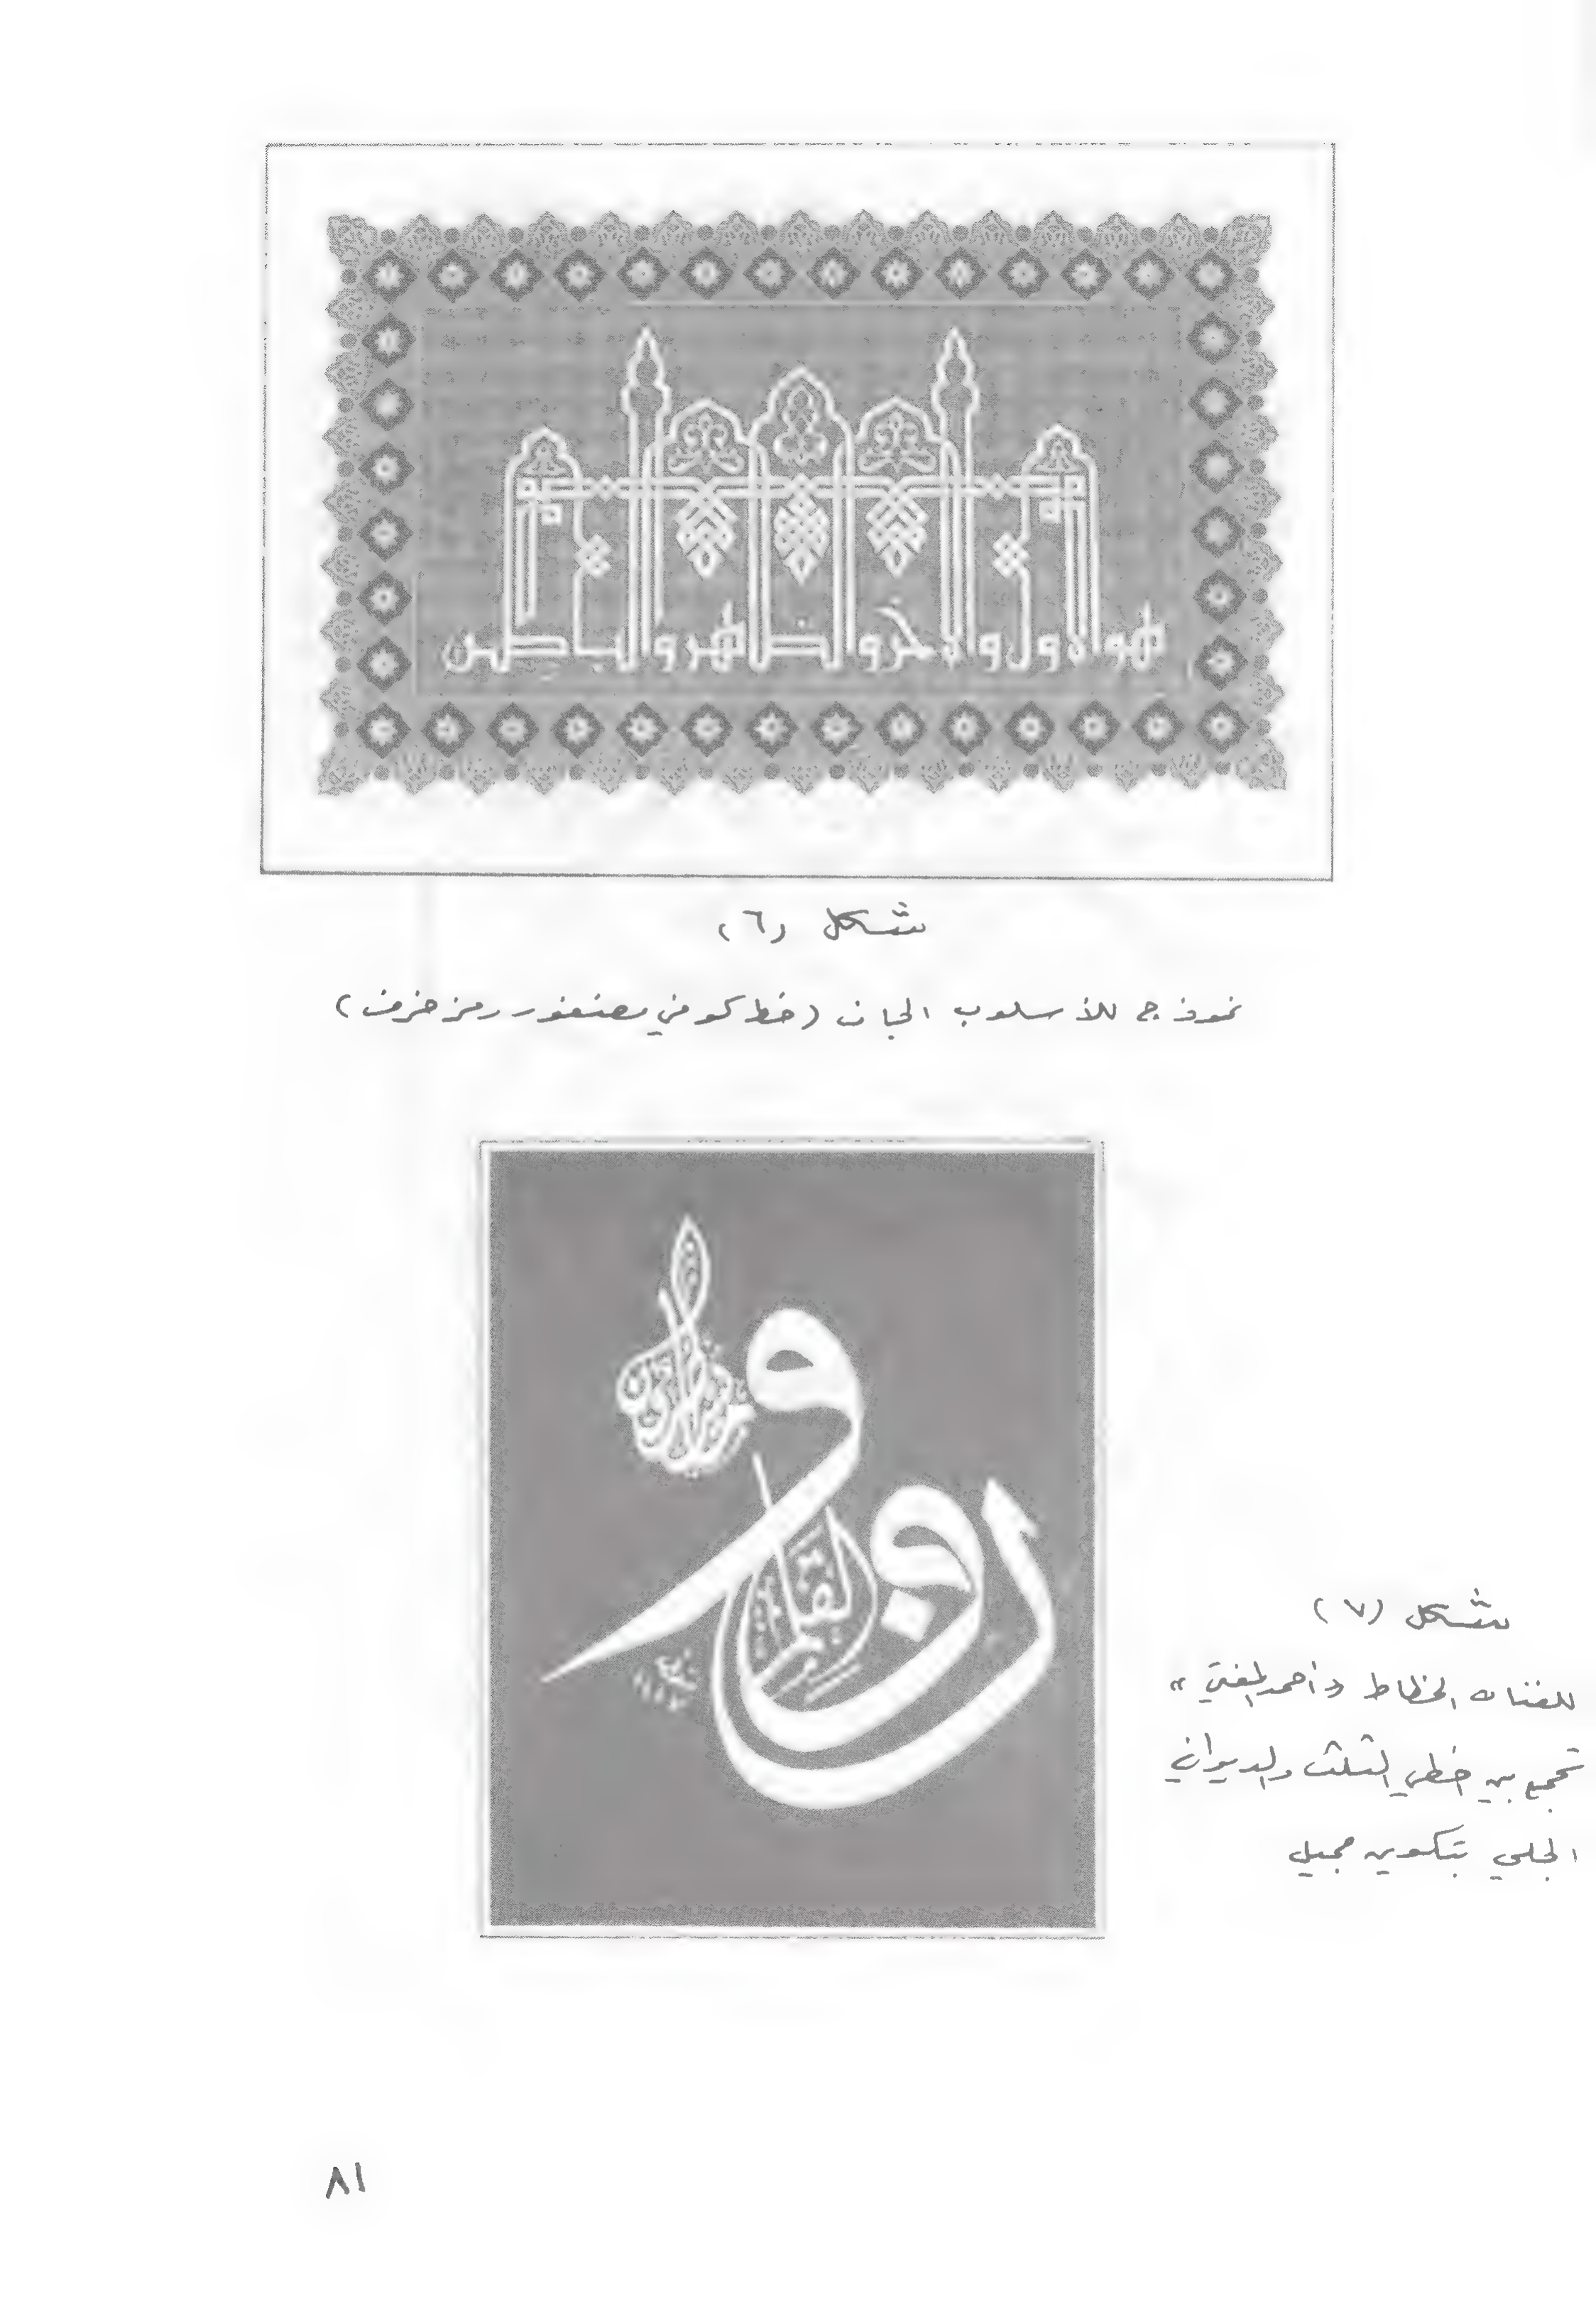 هو الاول والاخر والظاهر والباطن
شكل (٦)
نموذج للأسلوب الجاف (خط كوفي مضفور ومزخرف)
ن والقلم وما يسطرون
شكل (٧)
للفنان الخطاط «أحمد المفتي»
تجمع بين خطي الثلث والديواني
الجلي بتكوين جميل
٨١